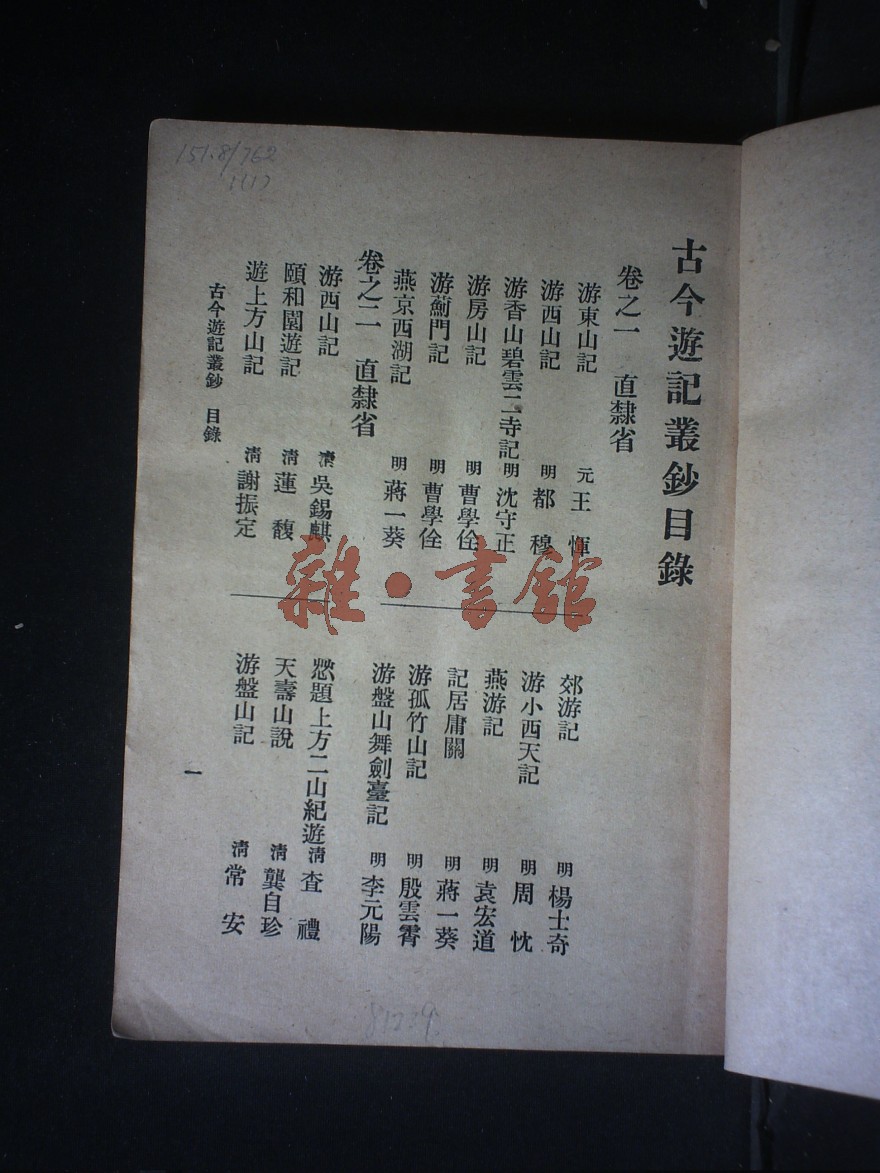 古今遊記叢鈔目錄
卷之一　直隸省
游東山記　元　王惲
游西山記　明　都穆
游香山碧雲二寺記　明　沈守正
游房山記　明　曹學佺
游薊門記　明　曹學佺
燕京西湖記　明　蔣一葵
郊游記　明　楊士奇
游小西天記　明　周忱
燕游記　明　袁宏道
記居庸關　明　蔣一葵
游孤竹山記　明　殷雲霄
游盤山舞劍臺記　明　李元陽
卷之二　直隸省
游西山記　清　吳錫麒
頤和園遊記　清　蓮馥
遊上方山記　清　謝振定
題上方二山紀遊　清　查禮
天壽山說　清　龔自珍
游盤山記　清　常安
古今遊記叢鈔　目錄
一
雜·書館
151.8/762
81239